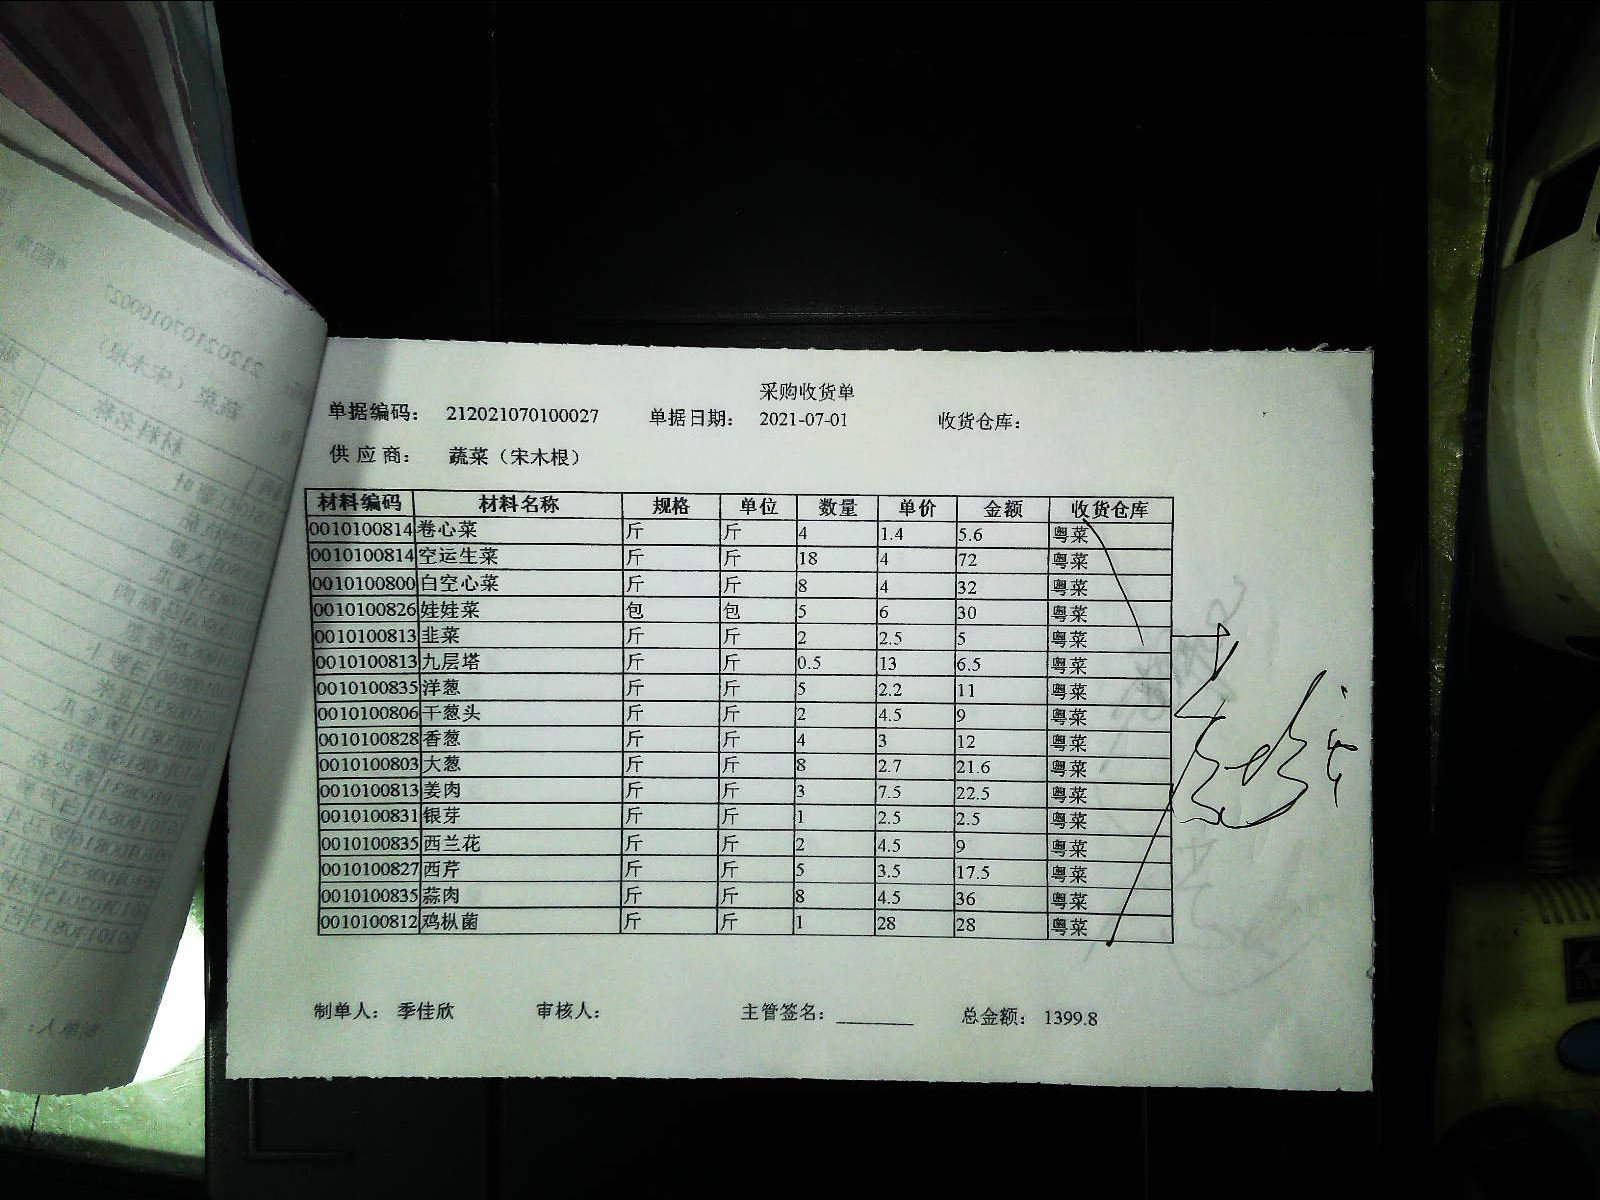 采购收货单
单据编码： 212021070100027 单据日期： 2021-07-01 收货仓库：
供 应 商： 蔬菜（宋木根）
材料编码 材料名称 规格 单位 数量 单价 金额 收货仓库
0010100814 卷心菜 斤 斤 4 1.4 5.6 粤菜
0010100814 空运生菜 斤 斤 18 4 72 粤菜
0010100800 白空心菜 斤 斤 8 4 32 粤菜
0010100826 娃娃菜 包 包 5 6 30 粤菜
0010100813 韭菜 斤 斤 2 2.5 5 粤菜
0010100813 九层塔 斤 斤 0.5 13 6.5 粤菜
0010100835 洋葱 斤 斤 5 2.2 11 粤菜
0010100806 干葱头 斤 斤 2 4.5 9 粤菜
0010100828 香葱 斤 斤 4 3 12 粤菜
0010100803 大葱 斤 斤 8 2.7 21.6 粤菜
0010100813 姜肉 斤 斤 3 7.5 22.5 粤菜
0010100831 银芽 斤 斤 1 2.5 2.5 粤菜
0010100835 西兰花 斤 斤 2 4.5 9 粤菜
0010100827 西芹 斤 斤 5 3.5 17.5 粤菜
0010100835 蒜肉 斤 斤 8 4.5 36 粤菜
0010100812 鸡枞菌 斤 斤 1 28 28 粤菜
制单人： 季佳欣 审核人： 主管签名： ________ 总金额： 1399.8